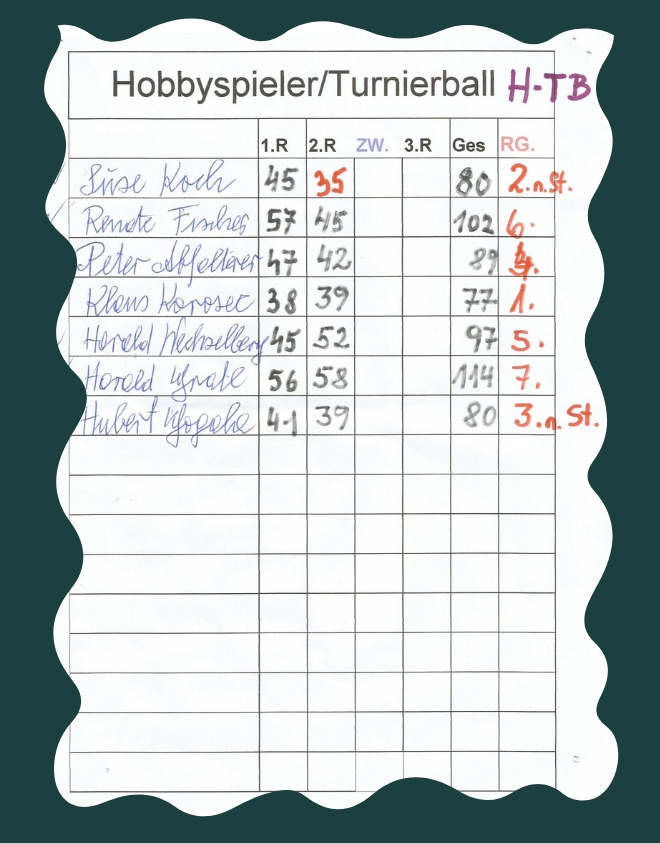 Hobbyspieler/Turnierball H-TB
1.R 2.R ZW. 3.R Ges RG.
Suse Koch 45 35 80 2.n.St.
Renate Fischer 57 45 102 6.
Peter 47 42 89 4.
Klaus Korosec 38 39 77 1.
Harald Wechselberg 45 52 97 5.
Harald 56 58 114 7.
Hubert 41 39 80 3.n.St.